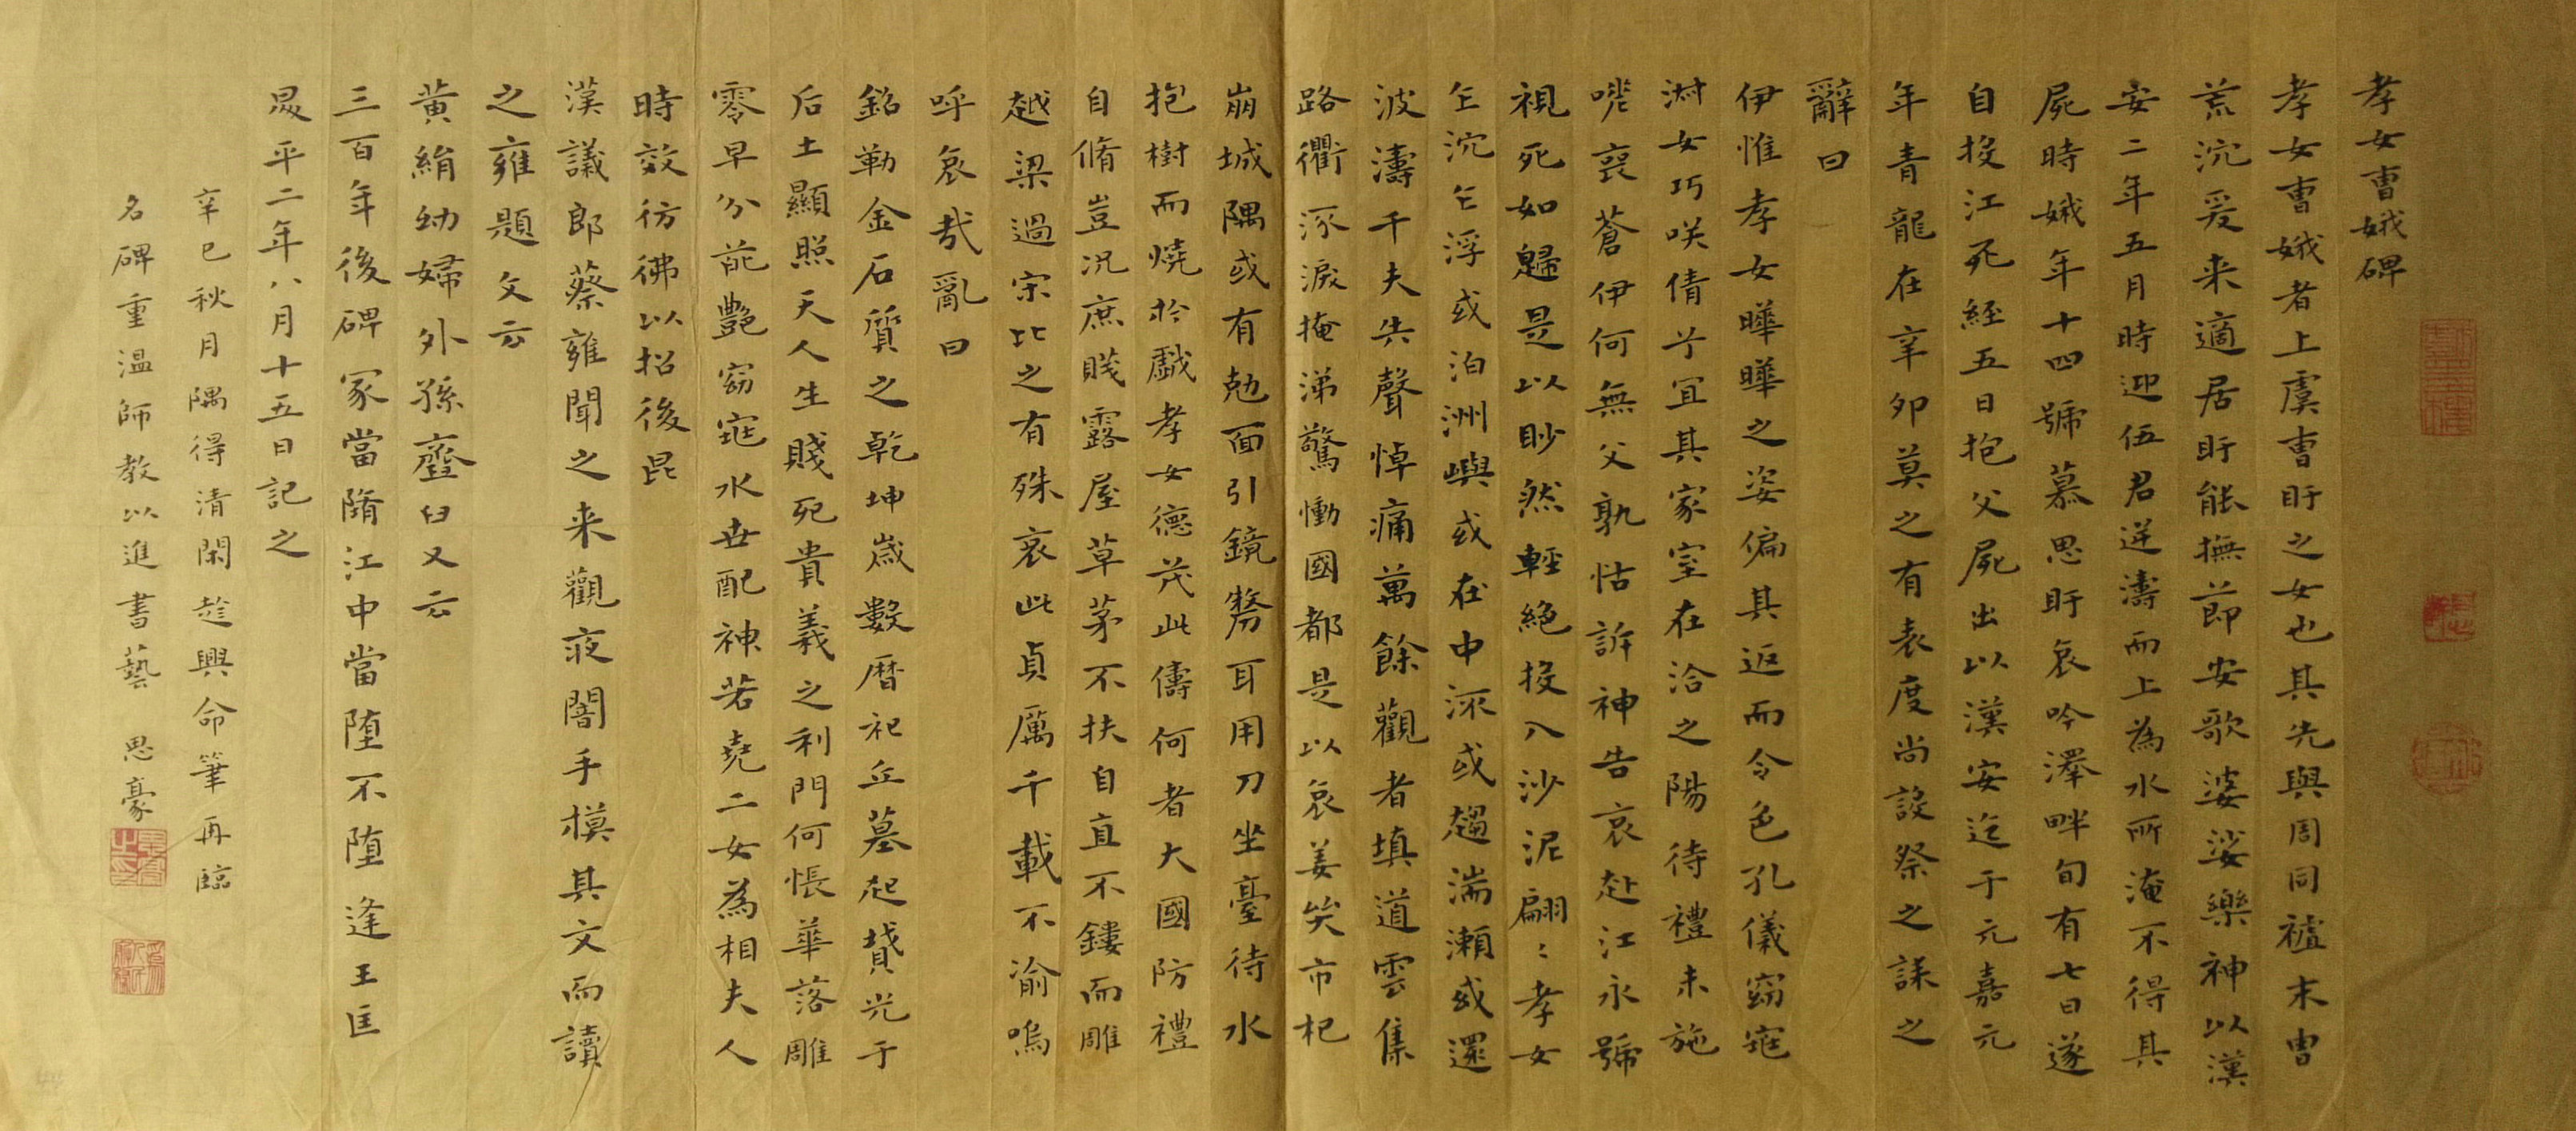 孝女曹娥碑
孝女曹娥者上虞曹盱之女也其先與周同祖末曹
荒沉爰来適居盱能撫節安歌婆娑樂神以漢
安二年五月時迎伍君逆濤而上為水所淹不得其
屍時娥年十四號慕思盱哀吟澤畔旬有七日遂
自投江死經五日抱父屍出以漢安迄于元嘉元
年青龍在辛卯莫之有表度尚設祭之誄之
辭曰
伊惟孝女曄曄之姿偏其返而令色孔儀窈窕
淑女巧咲倩兮宜其家室在洽之陽待禮未施
嗟喪蒼伊何無父孰怙訴神告哀赴江永號
視死如歸是以眇然輕絕投入沙泥翩〻孝女
乍沉乍浮或泊洲嶼或在中流或趨湍瀨或還
波濤千夫失聲悼痛萬餘觀者填道雲集
路衢流淚掩涕驚慟國都是以哀姜哭市杞
崩城隅或有尅面引鏡剺耳用刀坐臺待水
抱樹而燒於戲孝女德茂此儔何者大國防禮
自脩豈況庶賤露屋草茅不扶自直不鏤而雕
越梁過宋比之有殊哀此貞厲千載不渝嗚
呼哀哉亂曰
銘勒金石質之乾坤歲數曆祀丘墓起墳光于
后土顯照天人生賤死貴義之利門何悵華落雕
零早分葩艷窈窕永世配神若堯二女為相夫人
時效彷彿以招後昆
漢議郎蔡雍聞之来觀夜闇手摸其文而讀
之雍題文云
黃絹幼婦外孫齏臼又云
三百年後碑冢當墮江中當墮不墮逢王匡
昇平二年八月十五日記之
辛巳秋月隅得清閑趁興命筆再臨
名碑重温師教以進書藝 思豪